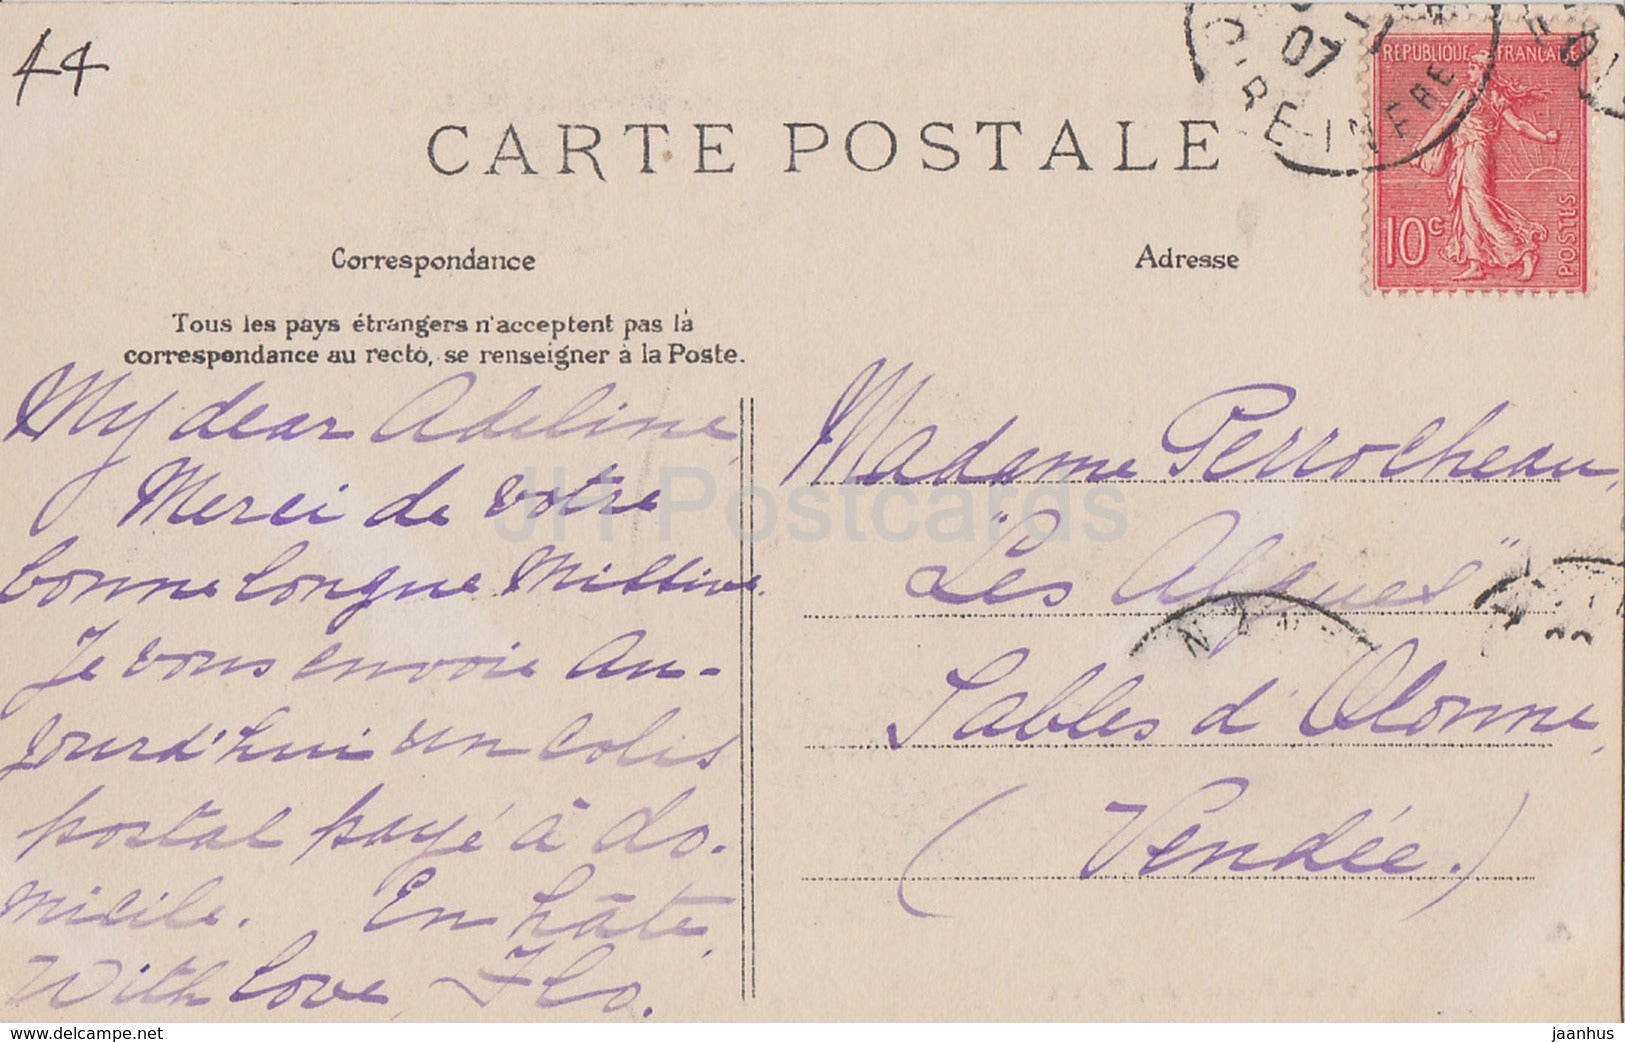 44
CARTE POSTALE
Correspondance
Adresse
Tous les pays étrangers n'acceptent pas la
correspondance au recto, se renseigner à la Poste.
My dear Adeline,
Merci de votre
bonne longue missive.
Je vous envoie au-
jourd'hui un colis
postal payé à do-
micile. En hâte,
With love, Flo.
Madame Perrocheau,
"Les Algues"
Sables d'Olonne,
(Vendée.)
REPUBLIQUE FRANÇAISE
10c
POSTES
07
RE-INFRE
NAN
JH Postcards
www.delcampe.net
jaanhus